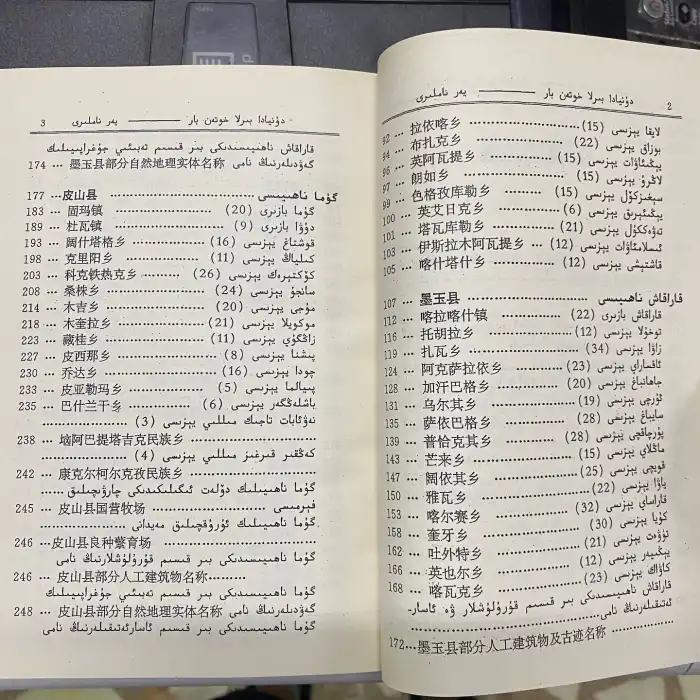 2 دۇنيادا بىرلا خوتەن بار ——— يەر ناملىرى
لايقا يېزىسى (15) ... 拉依喀乡 ... 92
بوزاق يېزىسى (22) ... 布扎克乡 ... 94
يېڭىئاۋات يېزىسى (15) ... 英阿瓦提乡 ... 96
لاڭرۇ يېزىسى (15) ... 朗如乡 ... 97
سېغىزكۆل يېزىسى (15) ... 色格孜库勒乡 ... 99
يېڭىئېرىق يېزىسى (6) ... 英艾日克乡 ... 100
تەۋەككۈل يېزىسى (21) ... 塔瓦库勒乡 ... 101
ئىسلامئاۋات يېزىسى (12) ... 伊斯拉木阿瓦提乡 ... 103
قاشتېشى يېزىسى (12) ... 喀什塔什乡 ... 105
قاراقاش ناھىيىسى ... 墨玉县 ... 107
قاراقاش بازىرى (22) ... 喀拉喀什镇 ... 112
توخۇلا يېزىسى (12) ... 托胡拉乡 ... 116
زاۋا يېزىسى (34) ... 扎瓦乡 ... 119
ئاقساراي يېزىسى (23) ... 阿克萨拉依乡 ... 124
جاھانباغ يېزىسى (20) ... 加汗巴格乡 ... 128
ئۇرچى يېزىسى (19) ... 乌尔其乡 ... 131
سايباغ يېزىسى (28) ... 萨依巴格乡 ... 135
پۇرچاقچى يېزىسى (28) ... 普恰克其乡 ... 139
ماڭلاي يېزىسى (15) ... 芒来乡 ... 143
قويچى يېزىسى (25) ... 阔依其乡 ... 147
ياۋا يېزىسى (22) ... 雅瓦乡 ... 150
قاراساي يېزىسى (32) ... 喀尔赛乡 ... 153
كۇيا يېزىسى (30) ... 奎牙乡 ... 158
تۈۋەت يېزىسى (21) ... 吐外特乡 ... 162
يېڭىيەر يېزىسى (12) ... 英也尔乡 ... 166
كاۋاك يېزىسى (23) ... 喀瓦克乡 ... 168
قاراقاش ناھىيىسىدىكى بىر قىسىم قۇرۇلۇشلار ۋە ئاسار-
ئەتىقىلەرنىڭ نامى ...
墨玉县部分人工建筑物及古迹名称 ... 172
دۇنيادا بىرلا خوتەن بار ——— يەر ناملىرى 3
قاراقاش ناھىيىسىدىكى بىر قىسىم تەبىئىي جۇغراپىيىلىك
گەۋدىلەرنىڭ نامى 墨玉县部分自然地理实体名称 ... 174
گۇما ناھىيىسى ... 皮山县 ... 177
گۇما بازىرى (20) ... 固玛镇 ... 183
دۇۋا بازىرى (9) ... 杜瓦镇 ... 189
قوشتاغ يېزىسى (16) ... 阔什塔格乡 ... 193
كىلياڭ يېزىسى (11) ... 克里阳乡 ... 198
كۆكتېرەك يېزىسى (26) ... 科克铁热克乡 ... 203
سانجۇ يېزىسى (24) ... 桑株乡 ... 208
مۇجى يېزىسى (20) ... 木吉乡 ... 214
موكويلا يېزىسى (21) ... 木奎拉乡 ... 218
زاڭگۇي يېزىسى (11) ... 藏桂乡 ... 223
پىشنا يېزىسى (8) ... 皮西那乡 ... 227
چودا يېزىسى (16) ... 乔达乡 ... 230
پىيالما يېزىسى (5) ... 皮亚勒玛乡 ... 233
باشلەڭگەر يېزىسى (6) ... 巴什兰干乡 ... 235
نەۋئابات تاجىك مىللىي يېزىسى (3) ...
垴阿巴提塔吉克民族乡 ... 238
كەڭقىر قىرغىز مىللىي يېزىسى (4) ...
康克尔柯尔克孜民族乡 ... 242
گۇما ناھىيىلىك دۆلەت ئىگىلىكىدىكى چارۋىچىلىق ...
فېرمىسى ... 皮山县国营牧场 ... 245
گۇما ناھىيىلىك ئۇرۇقچىلىق مەيدانى ...
皮山县良种繁育场 ... 246
گۇما ناھىيىسىدىكى بىر قىسىم قۇرۇلۇشلارنىڭ نامى
皮山县部分人工建筑物名称 ... 246
گۇما ناھىيىسىدىكى بىر قىسىم تەبىئىي جۇغراپىيىلىك
گەۋدىلەرنىڭ نامى 皮山县部分自然地理实体名称 ... 248
گۇما ناھىيىسىدىكى بىر قىسىم ئاسارئەتىقىلەرنىڭ نامى